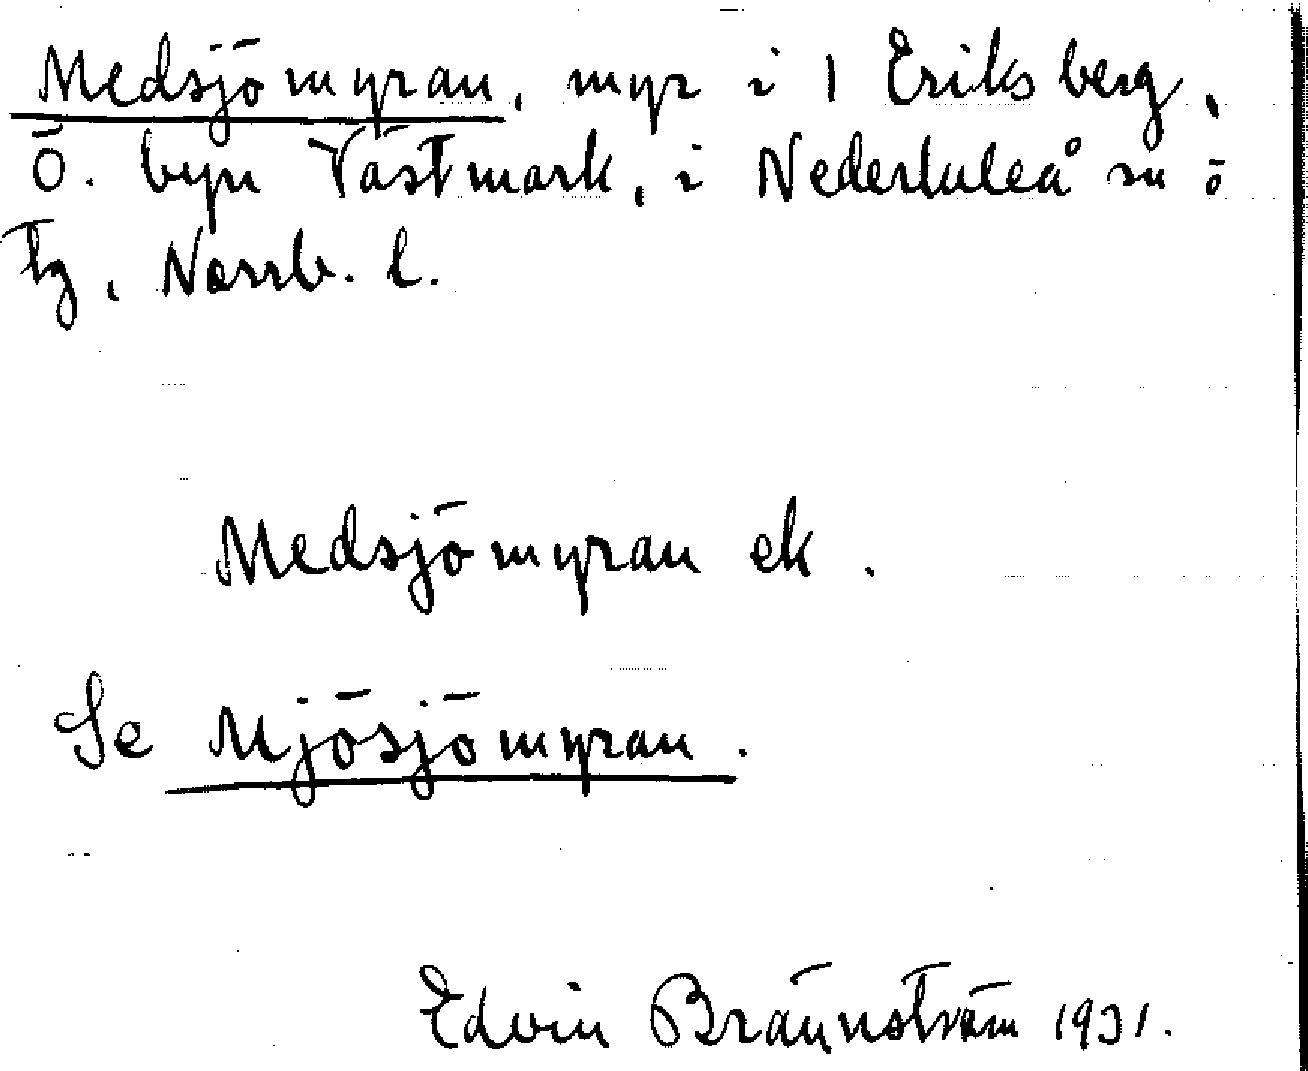 Medsjömyran, myr i 1 Eriksberg,
Ö. byn Västmark, i Nederluleå sn o
tg, Norrb. l.
Medsjömyran ek.
Se Mjösjömyran.
Edvin Brännström 1931.